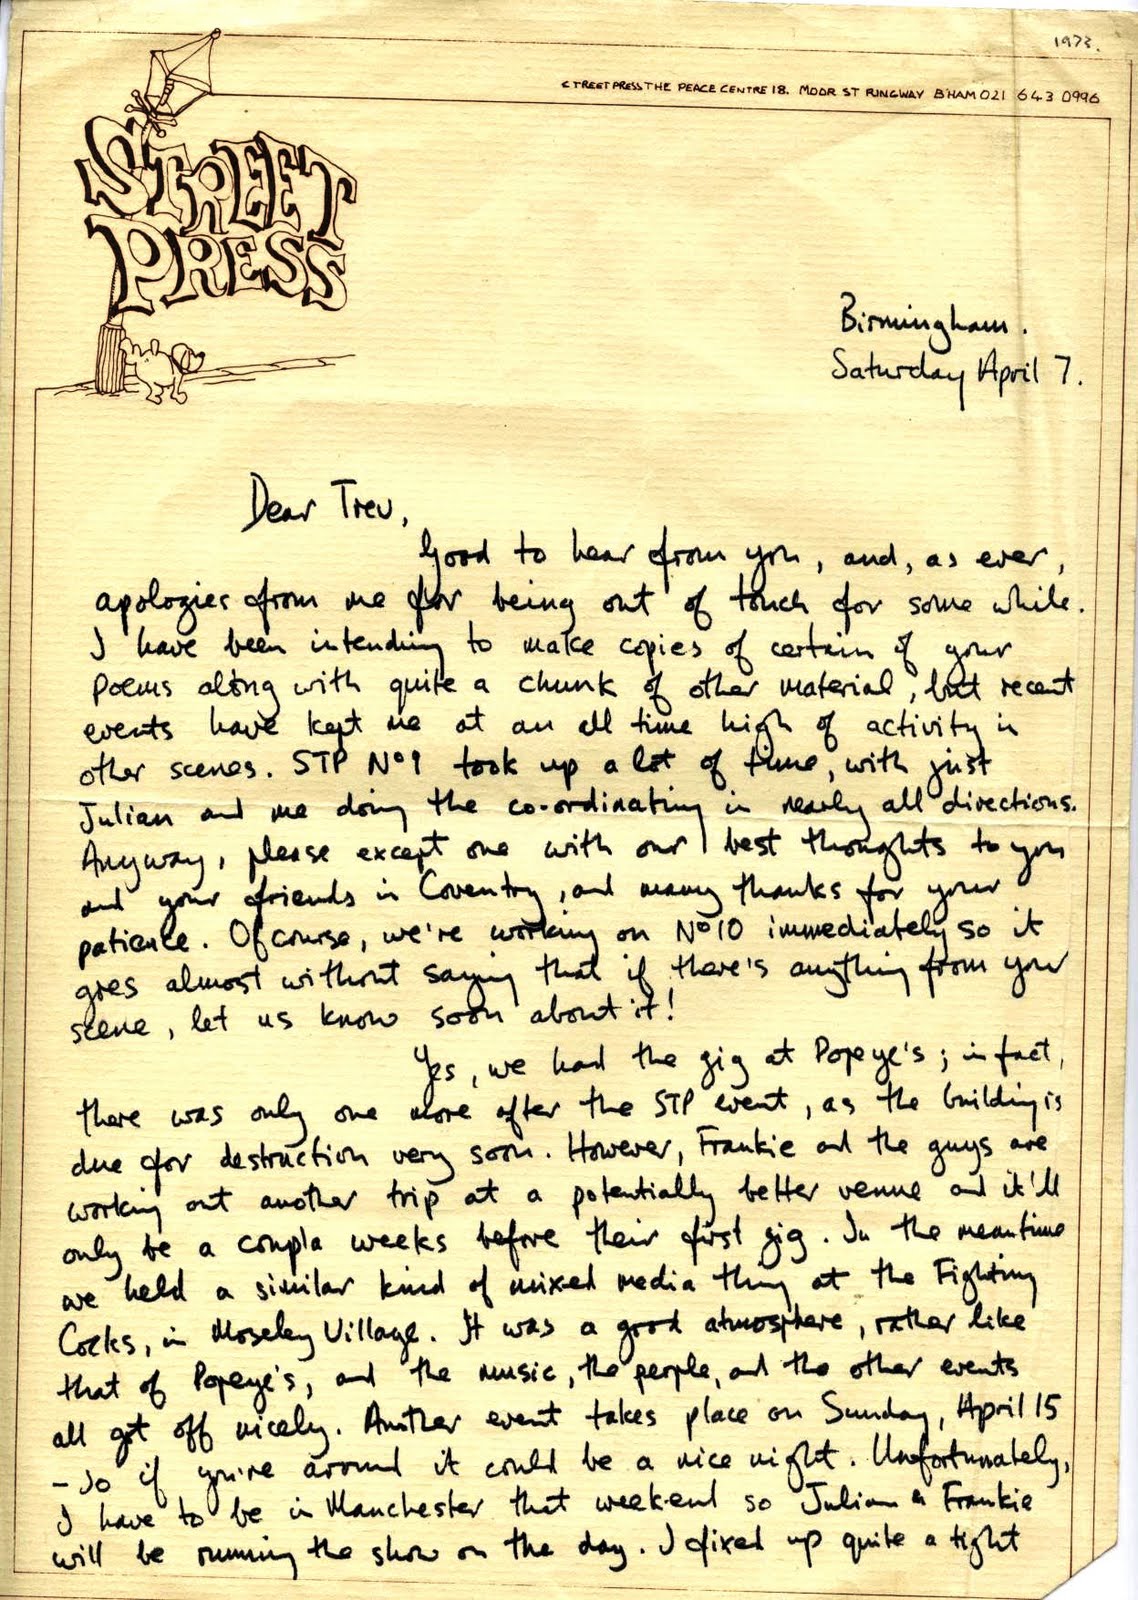 1973.
STREET PRESS THE PEACE CENTRE 18. MOOR ST RINGWAY B'HAM 021 643 0996
STREET
PRESS
Birmingham.
Saturday April 7.
Dear Trev,
Good to hear from you, and, as ever,
apologies from me for being out of touch for some while.
I have been intending to make copies of certain of your
poems along with quite a chunk of other material, but recent
events have kept me at an all time high of activity in
other scenes. STP No 9 took up a lot of time, with just
Julian and me doing the co-ordinating in nearly all directions.
Anyway, please except one with our best thoughts to you
and your friends in Coventry, and many thanks for your
patience. Of course, we're working on No 10 immediately so it
goes almost without saying that if there's anything from your
scene, let us know soon about it!
Yes, we had the gig at Popeye's; in fact,
there was only one more after the STP event, as the building is
due for destruction very soon. However, Frankie and the guys are
working out another trip at a potentially better venue and it'll
only be a coupla weeks before their first gig. In the meantime
we held a similar kind of mixed media thing at the Fighting
Cocks, in Moseley Village. It was a good atmosphere, rather like
that of Popeye's, and the music, the people, and the other events
all got off nicely. Another event takes place on Sunday, April 15
- so if you're around it could be a nice night. Unfortunately,
I have to be in Manchester that weekend so Julian & Frankie
will be running the show on the day. I fixed up quite a tight